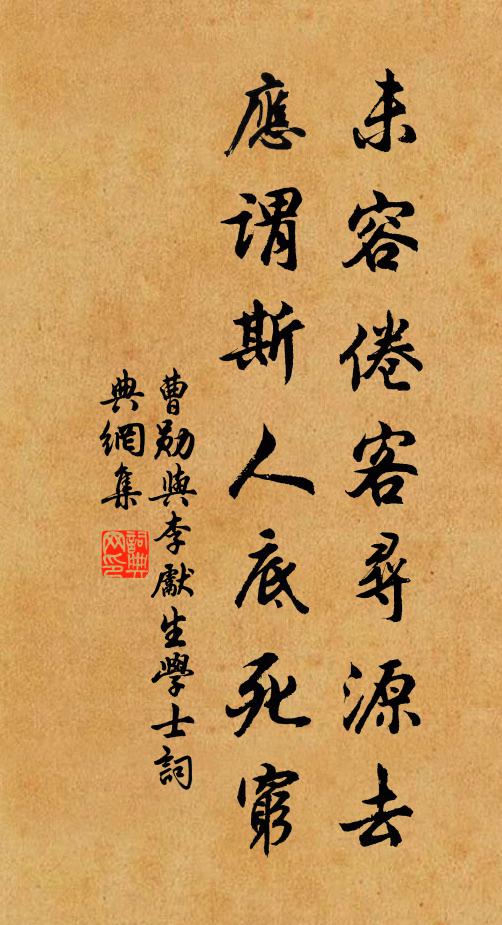 未容倦客尋源去
應謂斯人底死窮
曹勛與李獻生學士詞
典網集
詞典網印